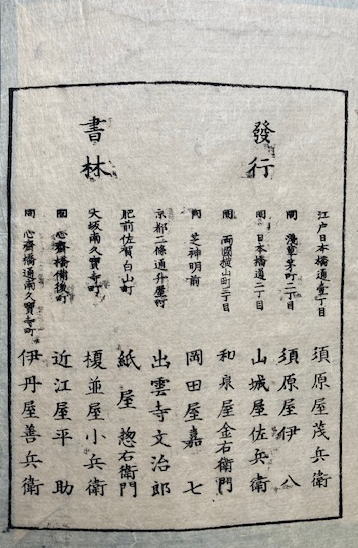 發行
書林
江戸日本橋通壹丁目 須原屋茂兵衛
同 淺草茅町二丁目 須原屋伊八
同 日本橋通二丁目 山城屋佐兵衛
同 両國横山町三丁目 和泉屋金右衛門
同 芝神明前 岡田屋嘉七
京都二條通升屋町 出雲寺文治郎
肥前佐賀白山町 紙屋惣右衛門
大坂南久寳寺町 榎並屋小兵衛
同 心齋橋備後町 近江屋平助
同 心齋橋通南久寳寺町 伊丹屋善兵衛